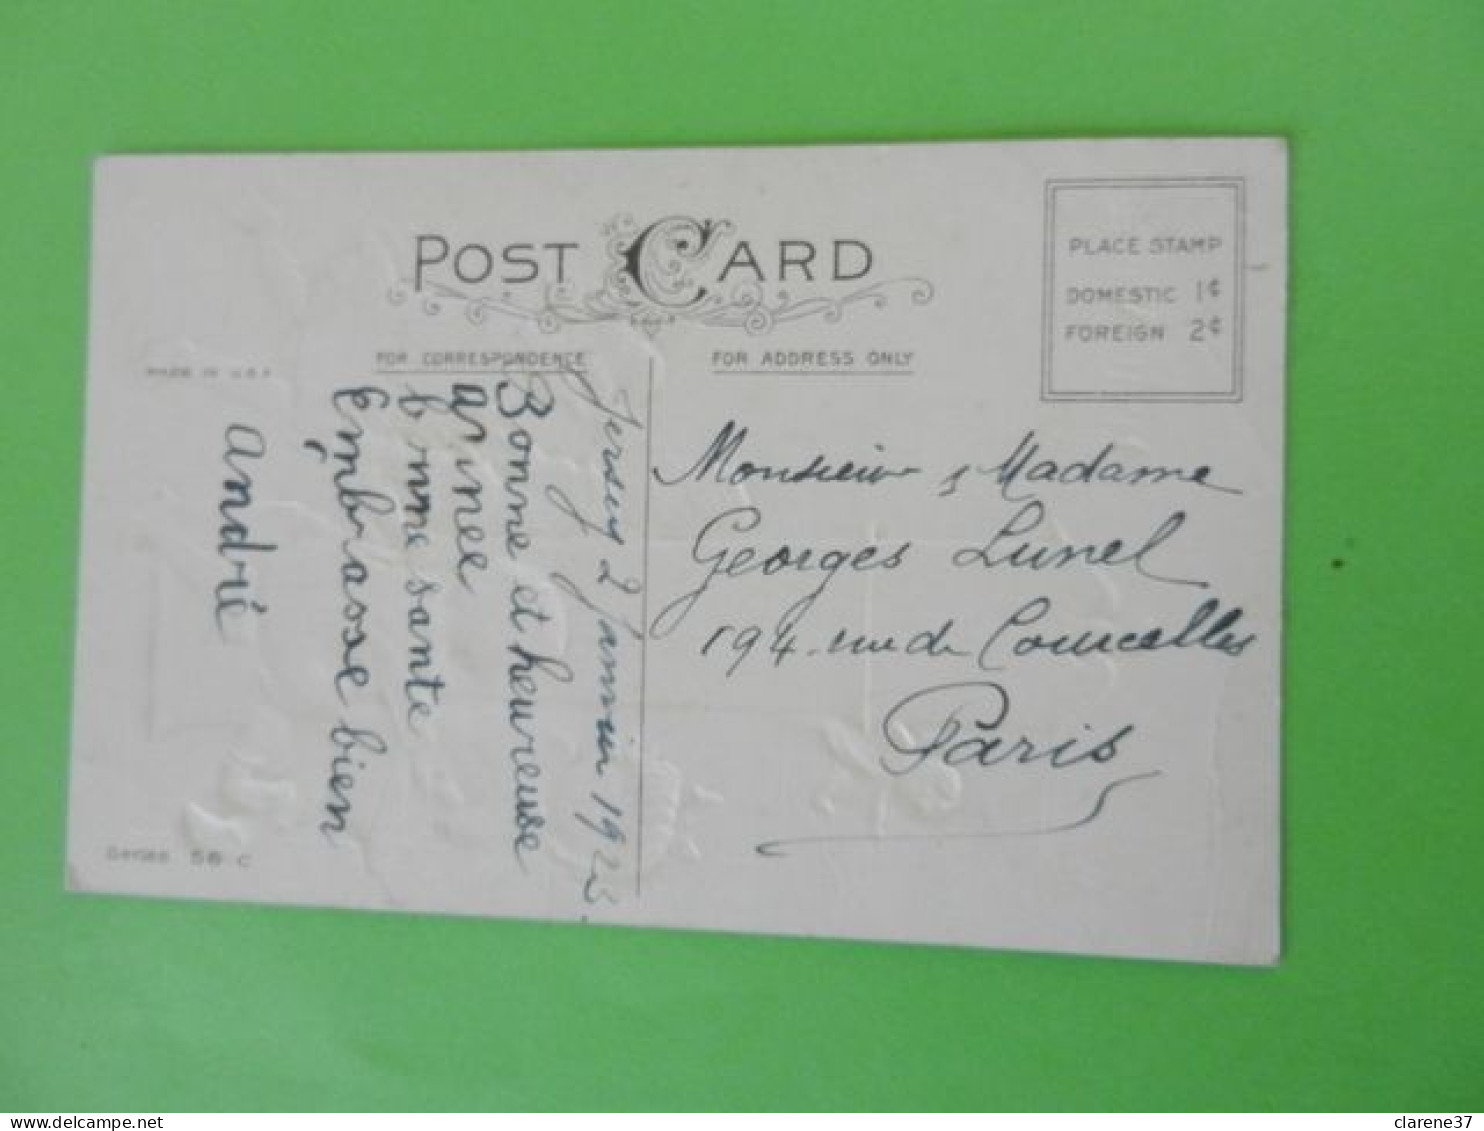 POST CARD
PLACE STAMP
DOMESTIC 1¢
FOREIGN 2¢
FOR CORRESPONDENCE
FOR ADDRESS ONLY
MADE IN U.S.A
Jersey 2 Janvier 1923.
Bonne et heureuse
année
bonne santé
Embrasse bien
André
Monsieur & Madame
Georges Lunel
194. rue de Courcelles
Paris
Series 56 C
clarene37